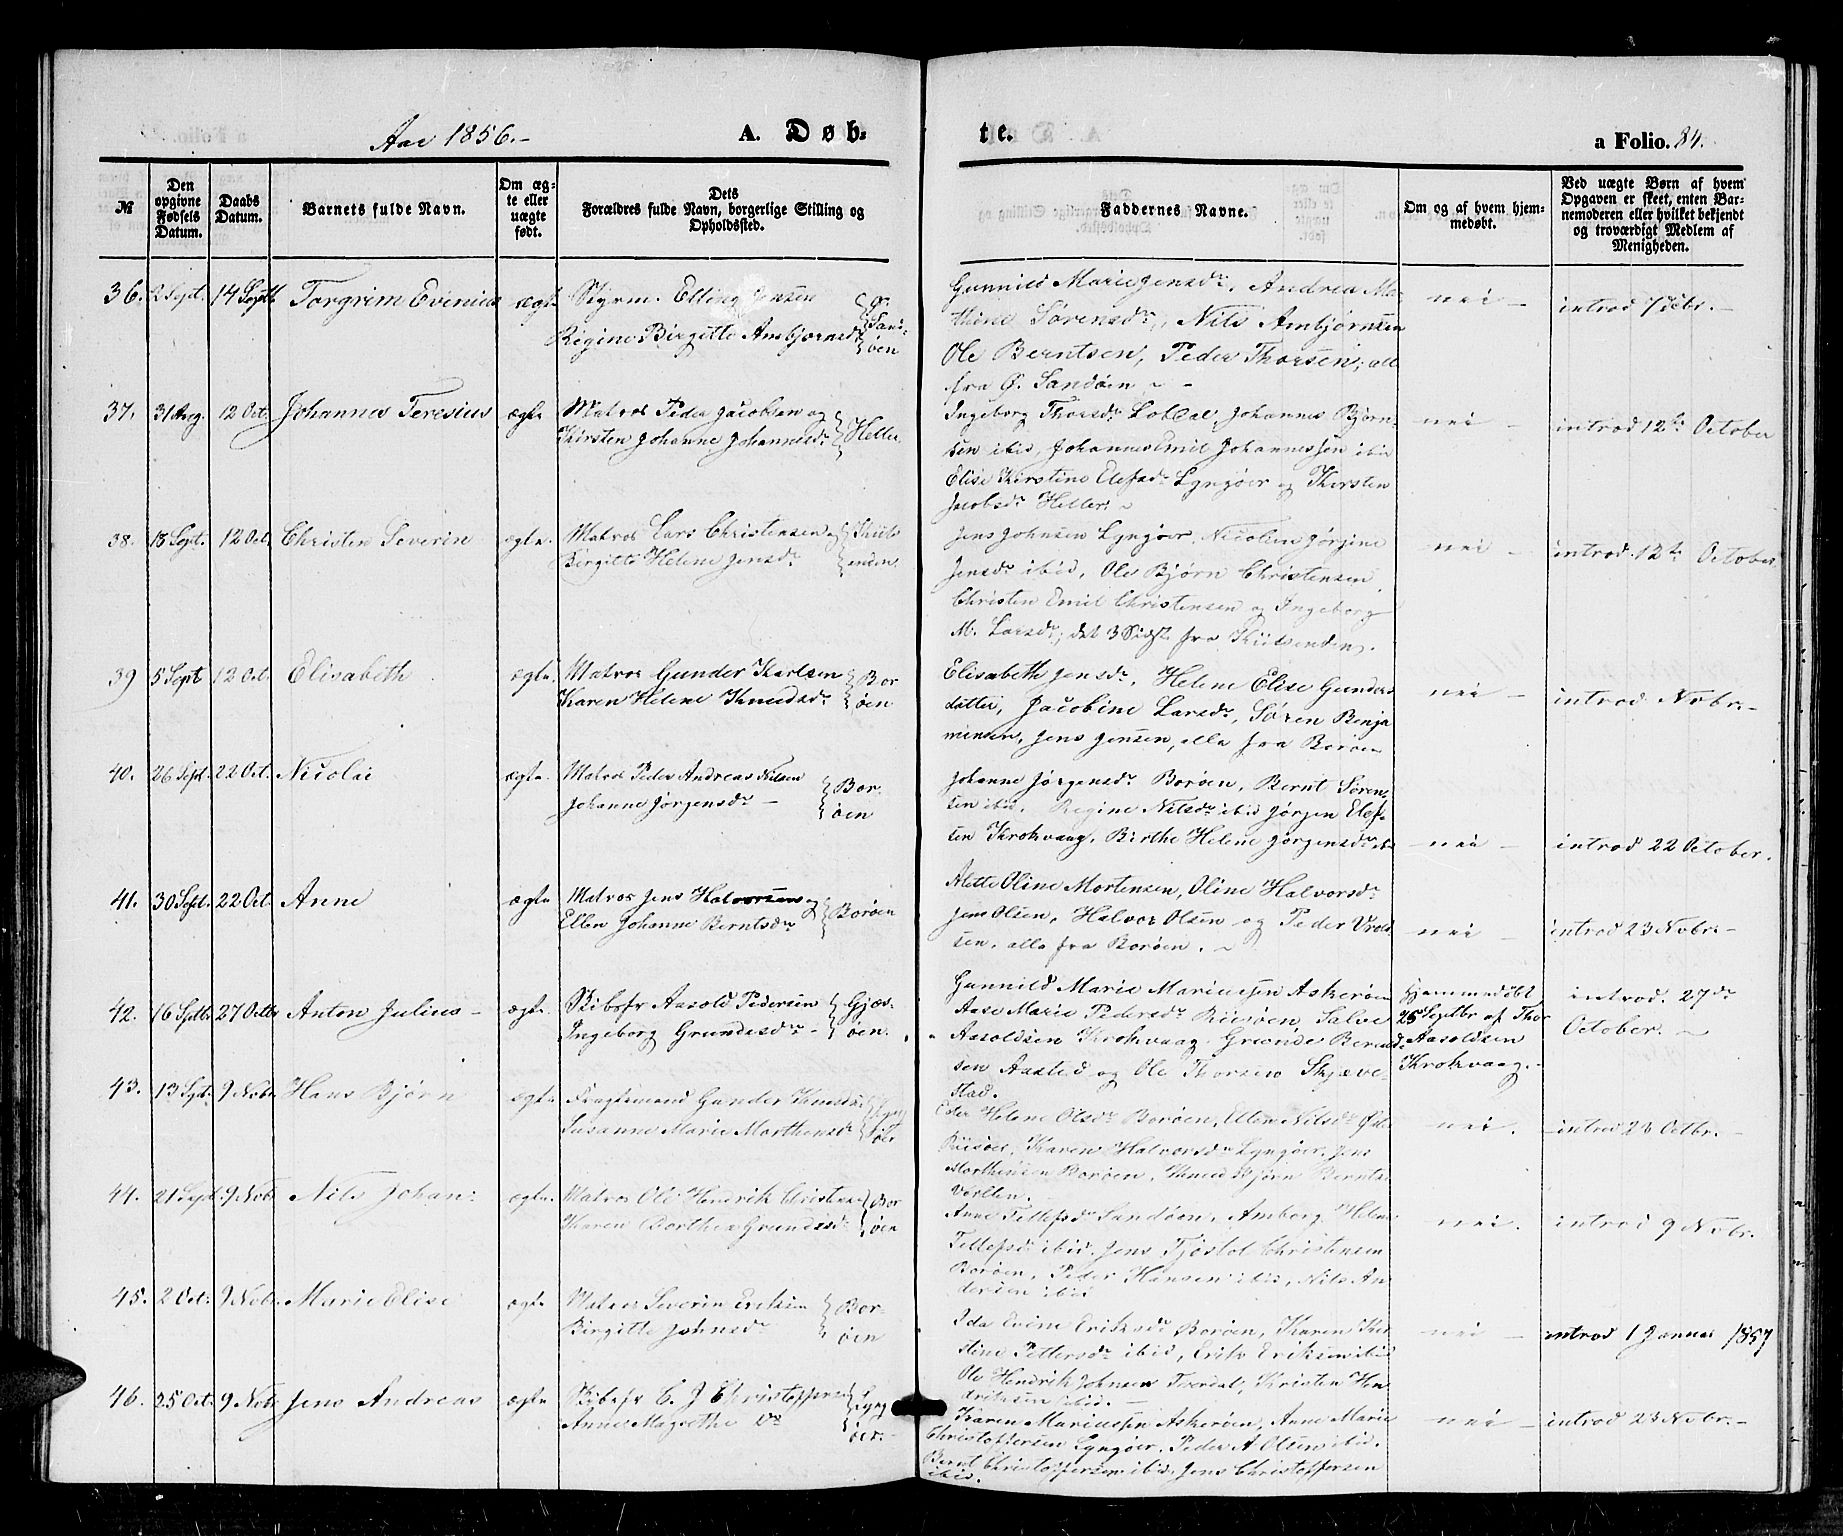 Aar 1856.-
A. Døb-
te.
a Folio. 84.
№
Den opgivne Fødsels Datum.
Daabs Datum.
Barnets fulde Navn.
Om ægte eller uægte født.
Dets Forældres fulde Navn, borgerlige Stilling og Opholdssted.
Faddernes Navne.
Om og af hvem hjemmedøbt.
Ved uægte Børn af hvem Opgaven er skeet, enten Barnemoderen eller hvilket bekjendt og troværdigt Medlem af Menigheden.
36. 2 Sept. 14 Septb Torgrim Evenius ægte
Styrm. Elling Jensen
Regine Birgitte Ambjørnsdr
Ø. Sandøen
Gunnild Marie Jensdr, Andrea Ma-
thine Sørensdr, Nils Ambjørnsen
Ole Berntsen, Peder Thorsen, all
fra Ø. Sandøen
nei -
introd 7 Decbr. -
37. 31 Aug. 12 Oct. Johannes Teresius ægte
Matros Peder Jacobsen og
Kirsten Johanne Johannesdr
Heller
Ingeborg Thorsdr Lobdal, Johannes Bjørn-
sen ibid, Johannes Emil Johannessen ibid
Elise Kirstine Elefsdr Lyngøer og Kirsten
Jacobsdr Heller.
nei -
introd 12te October
38. 18 Sept. 12 Oct. Christen Severin ægte.
Matros Lars Christensen og
Birgitte Helene Jensdr
Jens Johnsen Lyngøer, Nicoline Jørgine
Jensdr ibid, Ole Bjørn Christensen
Christen Emil Christensen og Ingeborg
M. Larsdr, det 3 Sidst fra
nei -
introd. 12te October
39 5 Sept 12 Oct. Elisabeth ægte.
Matros Gunder Karlsen
Karen Helene Knudsdr
Borøen
Elisabeth Jensdr, Helene Elise Gunders
datter, Jacobine Larsdr, Søren Benja
minsen, Jens Jensen, alle fra Borøen
nei -
introd Nobr. -
40. 26 Sept. 22 Oct. Nicolai ægte.
Matros Peder Andreas Nilsen
Johanne Jørgensdr -
Borøen
Johanne Jørgensdr Borøen, Bernt Søren-
sen ibid. Regine Nilsdr ibid Jørgen Elef-
sen Krokvaag, Birthe Helene Jørgensdr ibid
nei -
introd 22 October.
41. 30 Sept. 22 Oct. Anne ægte
Matros Jens Halvorsen og
Ellen Johanne Berntsdr
Borøen
Alette Oline Mortensen, Oline Halvorsdr
Jens Olsen, Halvor Olsen og Peder Vrold
sen, alle fra Borøen.
nei -
introd 23 Nobr. -
42. 16 Septbr 27 Octbr Anton Julius - ægte.
Skibsfr Aasold Pedersen
Ingeborg Grundesdr -
Gjæsøen.
Gunnild Marie Mariussen Askerøen
Aase Marie Pedersdr Riisøen, Salve
Aasoldsen Krokvaag, Grunde Berend
sen Aasted og Ole Thorsen Skjæve-
stad.
Hjemmedøbt
25 Septbr af Thor
Aasoldsen
Krokvaag. -
introd. 27de
October. -
43. 13 Spt. 9 Nobr Hans Bjørn ægte
Fragtemand Gunder Knudsen
Susanne Marie Morthensdr
Lyngøer
Helene Olsdr Borøen, Ellen Nilsdr Øste
Riisøer, Karen Halvorsdr Lyngøer, Jens
Morthensen Borøen, Knud Bjørn Bernts
nei.
introd 23 Octbr. -
44. 21 Sept 9 Nob. Nils Johan ægte.
Matros Ole Hendrik Christens
Karen Borthea Grundesdr
Borøen
Anne Tellefsdr Sandøen, Amborg Helene
Tellefsdr ibid, Jens Tjøstol Christensen
Borøen, Peder Hansen ibid, Nils An
dersen ibid
nei.
introd 9 Nobr.
45. 2 Oct. 9 Nobr. Marie Elise ægte
Matros Severin Eriksen
Birgitte Johnsdr
Borøen
Ida Evine Eriksdr Borøen, Karen Kir
stine Pettersdr ibid, Erik Eriksen ibid
Ole Hendrik Johnsen, Kristen Hen
driksen ibid. -
nei -
introd 1 Januar 1857
46. 25 Oct. 9 Nob. Jens Andreas ægte
Skibsfr C. J Christoffersen
Anne Magrethe
Lyngøer. -
Karen Mariussen Askerøen, Anne Marie
Christoffersen Lyngøer, Peder A Olsen ibid.
Bernt Christoffersen ibid, Jens Christoffersen
ibid.
nei -
introd 23 Nobr. -